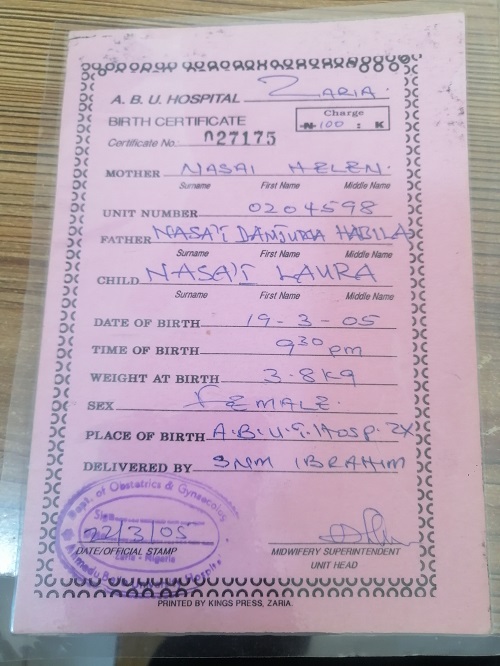 A. B. U. HOSPITAL ZARIA.
BIRTH CERTIFICATE
Charge
₦ 100 : K
Certificate No. 027175
MOTHER NASAI HELEN.
Surname First Name Middle Name
UNIT NUMBER 0204598
FATHER NASA'I DANJUMA HABILA
Surname First Name Middle Name
CHILD NASA'I LAURA
Surname First Name Middle Name
DATE OF BIRTH 19-3-05
TIME OF BIRTH 9 30 pm
WEIGHT AT BIRTH 3.8kg
SEX FEMALE.
PLACE OF BIRTH A.B.U.T. Hosp. ZX
DELIVERED BY SNM IBRAHIM
Dept. of Obstetrics & Gynaecology
22/3/05
Zaria - Nigeria
DATE/OFFICIAL STAMP
MIDWIFERY SUPERINTENDENT
UNIT HEAD
PRINTED BY KINGS PRESS, ZARIA.